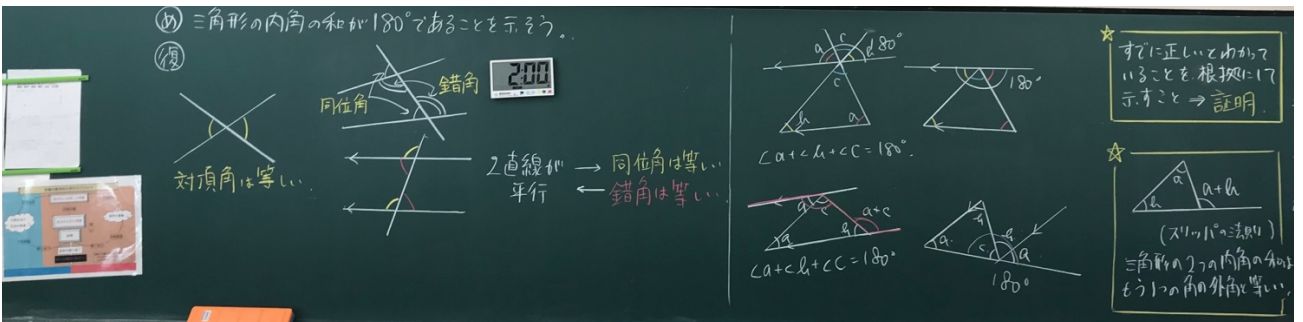 め 三角形の内角の和が180°であることを示そう。
復
対頂角は等しい.
同位角
錯角
2:00
2直線が
平行
→ 同位角は等しい
← 錯角は等しい.
a c b 180°
c
b a
∠a+∠b+∠c=180°.
180°
a c a+c
a b
∠a+∠b+∠c=180°
b
a c b a
180°
☆
すでに正しいとわかって
いることを根拠にして
示すこと ⇒ 証明.
☆
a
b a+b
(スリッパの法則)
三角形の2つの内角の和は
もう1つの角の外角と等しい.